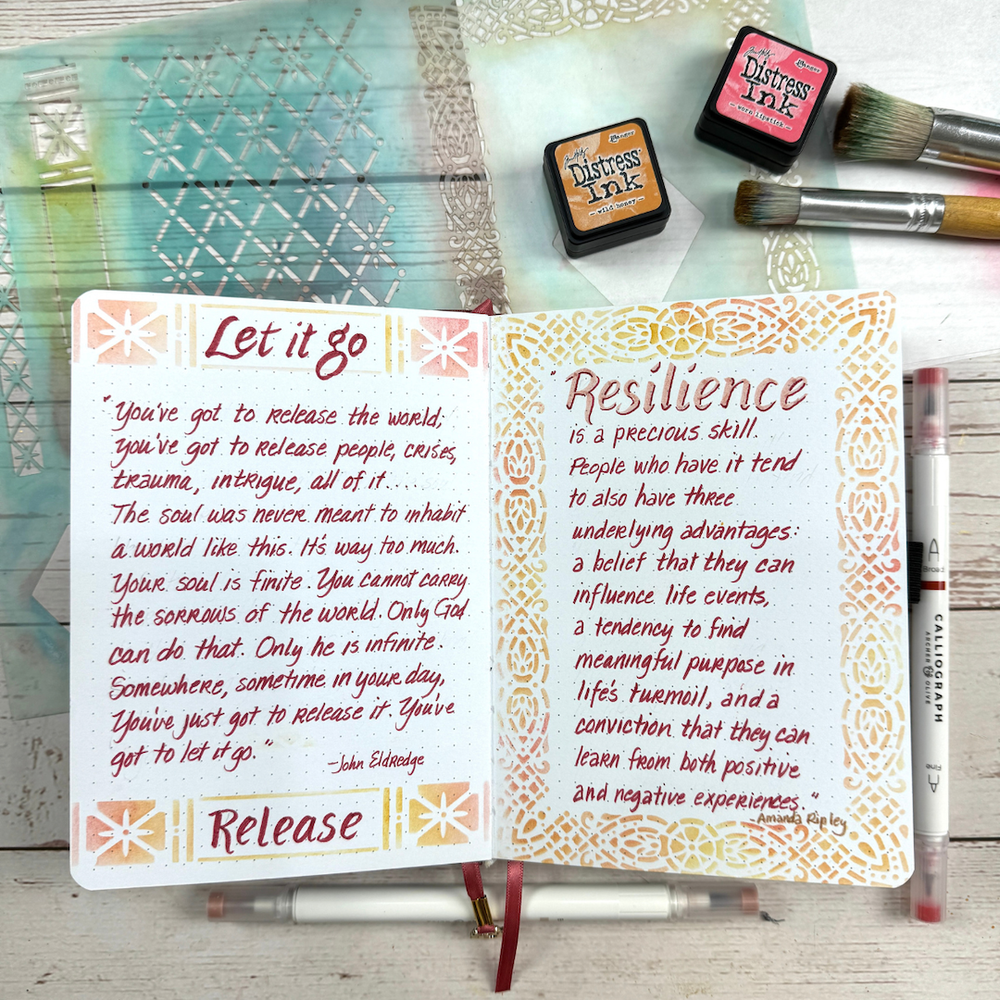 Tim Holtz
Ranger
Distress
Ink
- worn lipstick -
Tim Holtz
Ranger
Distress
Ink
- wild honey -
Let it go
"You've got to release the world;
you've got to release people, crises,
trauma, intrigue, all of it.....
The soul was never meant to inhabit
a world like this. It's way too much.
Your soul is finite. You cannot carry
the sorrows of the world. Only God
can do that. Only he is infinite.
Somewhere, sometime in your day,
You've just got to release it. You've
got to let it go."
-John Eldredge
Release
"Resilience
is a precious skill.
People who have it tend
to also have three
underlying advantages:
a belief that they can
influence life events,
a tendency to find
meaningful purpose in
life's turmoil, and a
conviction that they can
learn from both positive
and negative experiences."
-Amanda Ripley
A
Broad
CALLIOGRAPH
ARCHER & OLIVE
A
Fine